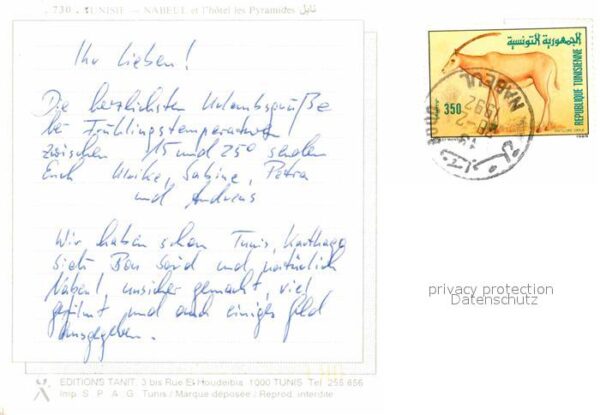 730 - TUNISIE - NABEUL et l'hôtel les Pyramides نابل
Ihr Lieben!
Die herzlichsten Urlaubsgrüße
bei Frühlingstemperaturen
zwischen 15 und 25° senden
Euch Ulrike, Sabine, Petra
und Andreas
Wir haben schon Tunis, Karthago
Sidi Bou Said und natürlich
Nabeul, unsicher gemacht, viel
gefilmt und auch einiges Geld
ausgegeben.
EDITIONS TANIT. 3 bis Rue El-Houdeibia 1000 TUNIS Tel. 256 656
Imp. S. P. A. G. Tunis / Marque déposée / Reprod. interdite
الجمهورية التونسية
REPUBLIQUE TUNISIENNE
350
NABEUL
1992
8000
نابل
privacy protection
Datenschutz